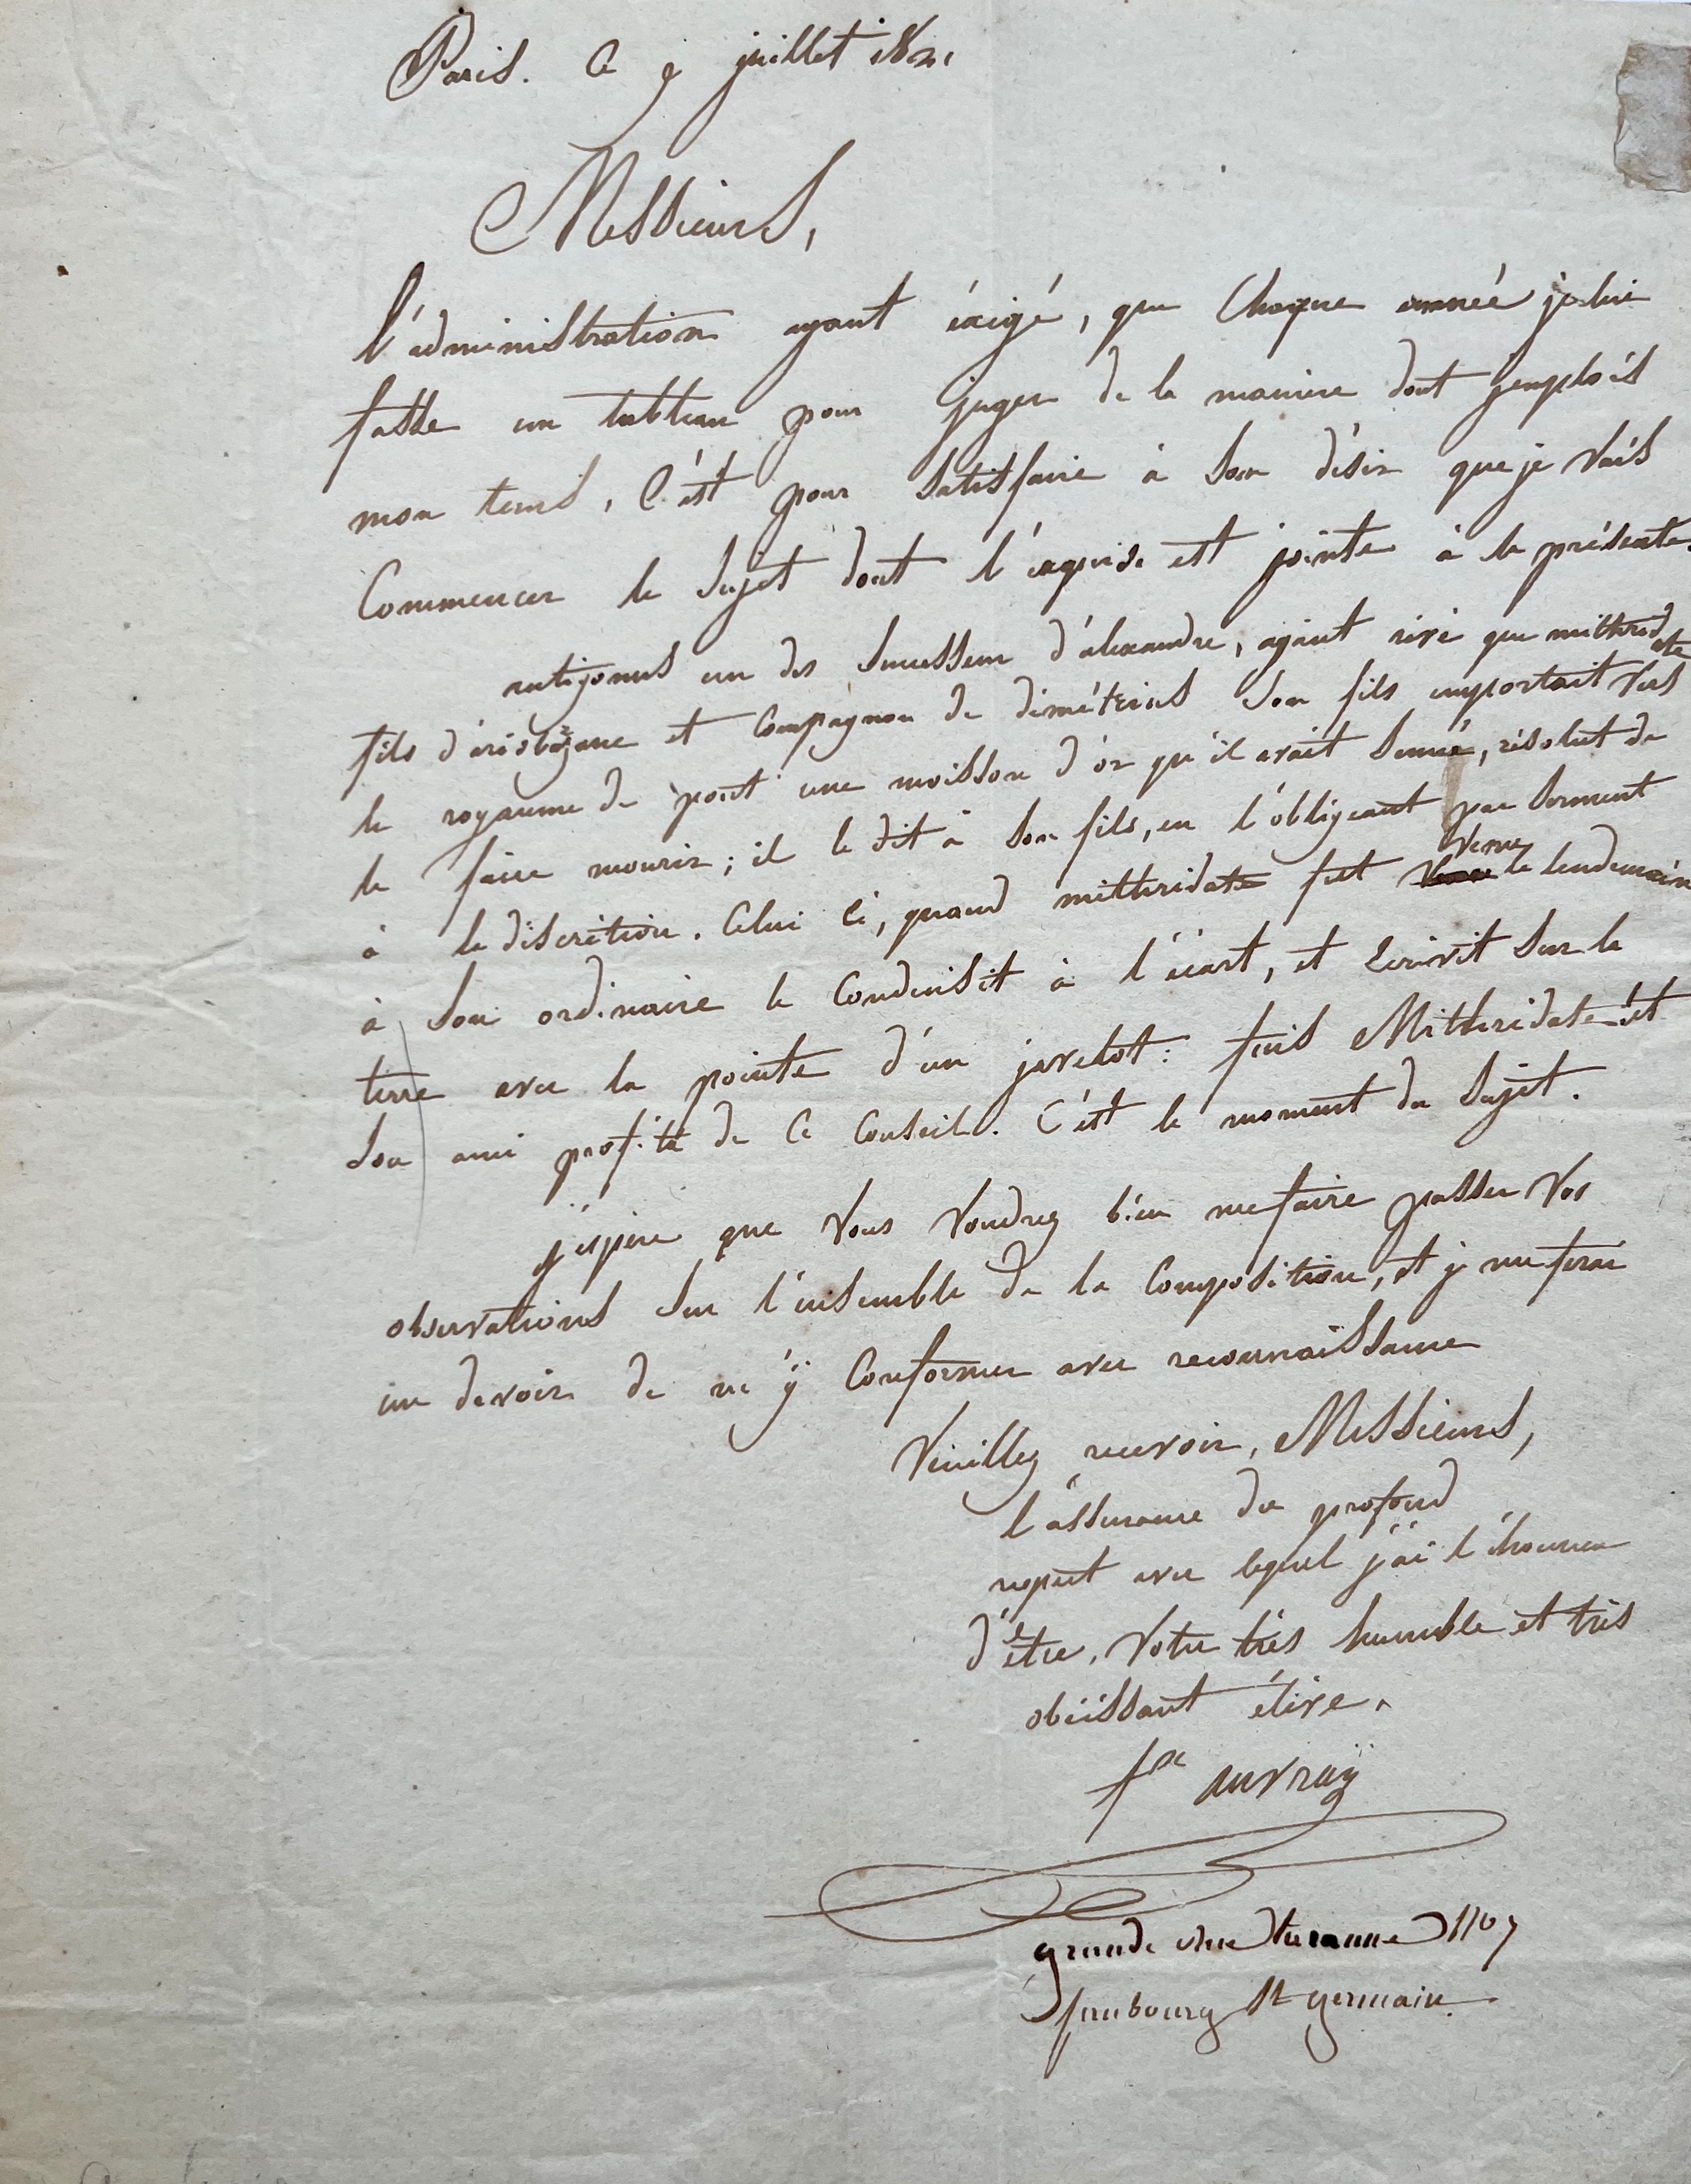 Paris. Ce 9 juillet 1821
Messieurs,
l'administration ayant éxigé, que Chaque année je lui
fasse un tableau pour juger de la maniere dont j'emploïs
mon tems, C'est pour satisfaire à son désir que je vais
Commencer le sujet dont l'esquise est jointe à la présente.
antigonus un des Successeur d'alexandre, ayant rivé que mitherid
ate
fils d'ariobazane et Compagnon de démétrius son fils emportait vers
le royaume de pont une moisson d'or qu'il avait semée, résolut de
le faire mourir; il le dit à son fils, en l'obligeant par serment
à la discrétion. Celui Ci, quand mitheridate fut venu le lendemain
à son ordinaire le Conduisit à l'écart, et Ecrivit sur la
terre avec la pointe d'un javelot: fuis Mitheridate et
son ami profita de Ce Conseil. C'est le moment du sujet.
j'espere que vous voudrez bien me faire passer vos
observations sur l'ensemble de la Composition, et je me ferai
un devoir de m'ÿ Conformer avec reconnaissance
Veuillez recevoir, Messieurs,
l'assurance du profond
respect avec lequel j'ai l'honneur
d'être, Votre très humble et très
obéissant élève.
fx auvraÿ
grande rue taranne No 7
faubourg St germain.